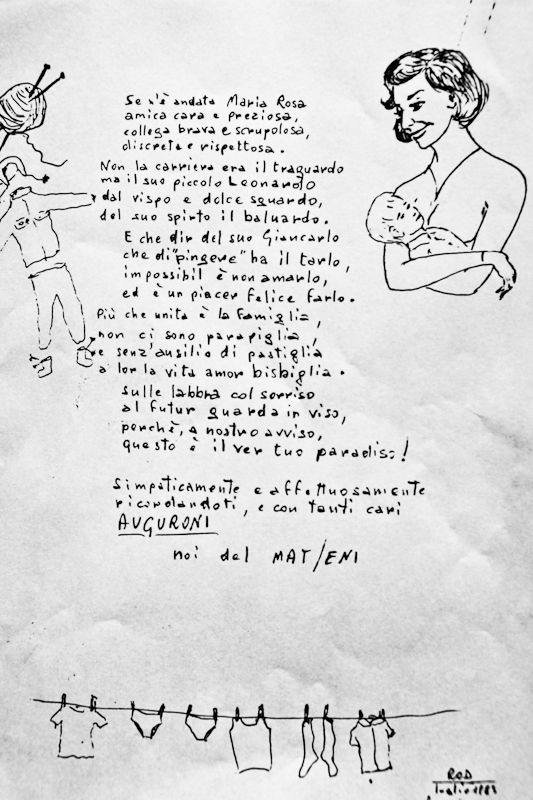 Se n'è andata Maria Rosa
amica cara e preziosa,
collega brava e scrupolosa,
discreta e rispettosa.
Non la carriera era il traguardo
ma il suo piccolo Leonardo
dal vispo e dolce sguardo,
del suo spirto il baluardo.
E che dir del suo Giancarlo
che di "pingere" ha il tarlo,
impossibil è non amarlo,
ed è un piacer felice farlo.
Più che unita è la famiglia,
non ci sono parapiglia,
e senz'ausilio di pastiglia
a lor la vita amor bisbiglia.
Sulle labbra col sorriso
al futur guarda in viso,
perchè, a nostro avviso,
questo è il ver tuo paradiso!
Simpaticamente e affettuosamente
ricordandoti, e con tanti cari
AUGURONI
noi del MAT/ENI
ROD
luglio